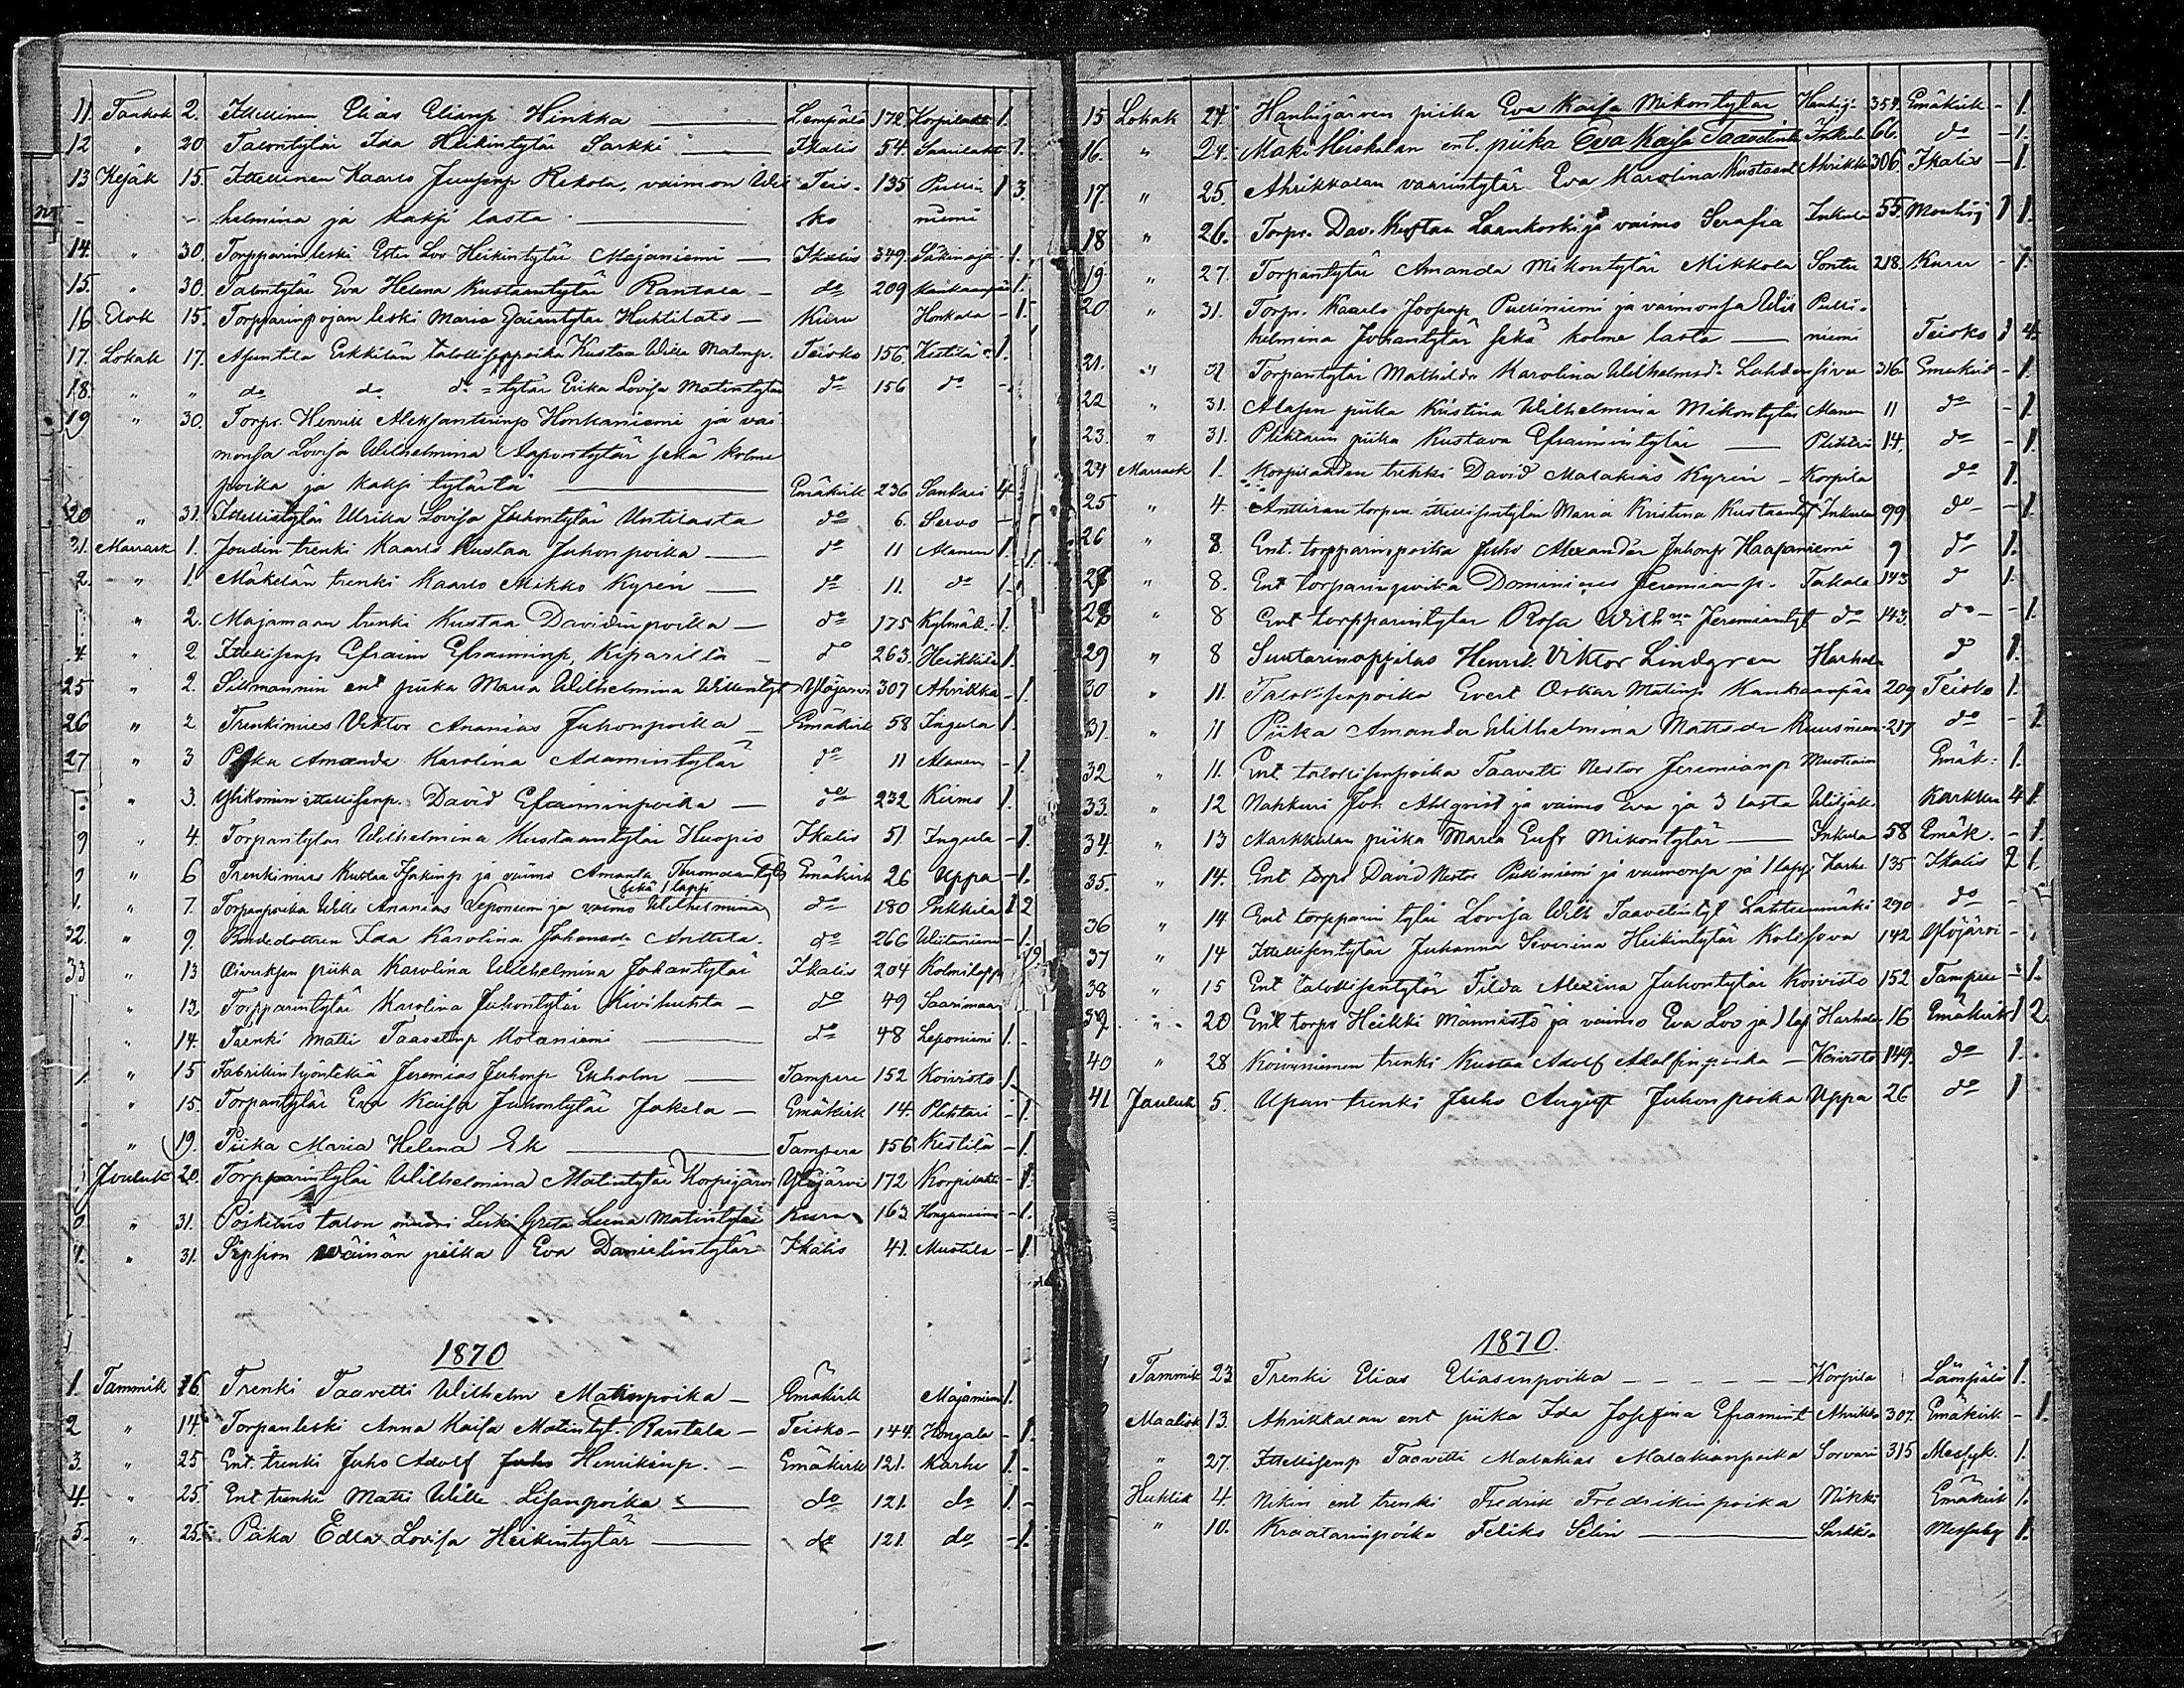 11. Toukok 2. Ittellinen Elias Elianp Hinkka — Lempälä 172 Korpilahti 1.
12 " 20 Talontytär Ida Heikintytär Sarkki — Ikalis 54. Saarilahti 1.
13 Kesäk 15. Ittellinen Kaarlo Juusenp Rekola, vaimon Wil Teis- 135 Pulli- 1 3.
helmina ja kaksi lasta — ko niemi
14. " 30. Torpparin leski Ester Lov Heikintytär Majaniemi — Ikalis 349. 1.
15. " 30. Talontytär Eva Helena Kustaantytär Rantala — do 209 Kankaanpää 1.
16 Elok 15. Torpparinpojan leski Maria Huhtilato — Kuru Honkala - 1.
17. Lokak 17. Erkkilän talollisenpoika Kustaa Wille Matinp. Teisko 156. Kestilä 1.
18. " " do do do = tytär Erika Lovisa Matintytär do 156 do -
19 " 30. Torpr. Henrik Aleksanterinp Honkaniemi ja vai
monsa Lovisa Wilhelmina Aapontytär sekä kolme
poika ja kaksi tytärtä — Emäkirk 236 Sankari 4
20 " 31. Ittellistytär Ulrika Lovisa Juhontytär Untilasta do 6. Servo -
21. Marrask 1. Joudin trenki Kaarlo Kustaa Juhonpoika — do 11 Alanen 1.
2. " 1. Mäkelän trenki Kaarlo Mikko Kyrén — do 11. do 1.
" 2. Majamaan trenki Kustaa Davidinpoika — do 175 Kylmälä. 1.
4. " 2. Ittellisenp Efraim Efraiminp, Kiparilta — do 263. Heikkilä 1.
25 " 2. Sillmannin ent piika Maria Wilhelmina Willentyt Ylöjärvi 307 Ahrikka - 1.
26 " 2 Trenkimies Viktor Ananias Juhonpoika — Emäkirk 58 Ingula 1.
27 " 3 Piika Amanda Karolina Adamintytär do 11 Alanen - 1.
" 3. Ylikomin ittellisenp. David Efraiminpoika — do 232 Kirmo 1.
9 " 4. Torpantytar Wilhelmina Kustaantytär Huopio Ikalis 51. Ingula - 1.
0 " 6 Trenkimies Kustaa Isakinp ja vaimo Amanta Tuomaantytär Emäkirk 26 Uppa - 1.
sekä 1 lapsi
1. " 7. Torpanpoika Wille Ananias Leponiemi ja vaimo Wilhelmina do 180 Pukkila 1 2
32. " 9. Bondedottren Ida Karolina Johansdr Anttila. do 266 - 1.
33 " 13 piika Karolina Wilhelmina Johantytär Ikalis 204 Kolmilappi
" 13. Torpparintytär Karolina Juhontytär Kivihuhta — do 49 Saarimaa
" 14. Trenki Matti Taavetinp Molaniemi — do 48 Leponiemi 1.
1. " 15 Fabrikin työntekiä Jeremias Juhonp Ekholm — Tampere 152 Koivisto 1.
" 15. Torpantytär Eva Kaisa Juhontytär Jakela — Emäkirk 14. Plihtari - 1.
" 19. Piika Maria Helena Ek — Tampere 156 Kestilä - 1.
Jouluk 20. Torpparintytär Wilhelmina Matintytär Korpijärvi Ylöjärvi 172 Korpilahti - 1.
" 31. talon muori Leski Greta Leena Matintytär Kuru 163 - 1.
" 31. Väinän piika Eva Danielintytär Ikalis 41. Mustila - 1.
1870
1. Tammik 16. Trenki Taavetti Wilhelm Matinpoika — Emäkirk Majaniemi 1.
2 " 14. Torpanleski Anna Kaisa Matintyt. Rantala — Teisko - 144. Hongala - 1.
3. " 25 Ent. trenki Juho Adolf Juho Henrikinp. — Emäkirk 121. Karhe 1. -
4. " 25. Ent trenki Matti Wille Lisanpoika — do 121. do 1. -
5. " 25. Piika Edla Lovisa Heikintytär — do 121. do - 1.
15 Lokak 24. Hanhijärven piika Eva Kaisa Mikontytar Hanhij- 354. Emäkirk - 1.
16. " 24. Mäki Heiskalan ent. piika Eva Kaisa Taavetint Inkula 66. do - 1.
17. " 25. Ahrikkalan vaarintytär Eva Karolina Kustaant Ahrikka 306. Ikalis - 1.
18 " 26. Torpr. Dav. Kustaa Laankoski ja vaimo Serafia Inkula 55. Mouhij 1 1.
19 " 27. Torpantytär Amanda Mikontytär Mikkola Sontu 218. Kuru - 1.
20 " 31. Torpr. Kaarlo Joosenp Pulliniemi ja vaimonsa Wil Pulli-
helmina Johantytär sekä kolme lasta — niemi Teisko 1 4.
21. " 31 Torpantytär Mathilda Karolina Wilhelmsdr 316. Emäkirk - 1.
22 " 31. Alasen piika Kristina Wilhelmina Mikontytär Alanen 11 do - 1.
23. " 31. Plihtarin piika Kustava Efraimintytär — Plihtari 14. do - 1.
24 Marrask 1. Korpilahden trenki David Malakias Kyrén - Korpila do 1.
25 " 4. Anttiran torpan ittellisentytär Maria Kristina Kustaantyt Inkula 99 do - - 1.
26 " 8. Ent. torpparinpoika Juho Alexander Juhonp Haapaniemi 9 do 1.
27 " 8. Ent torparinpoika Dominicus Jeremianp. Takala 143 d 1.
28 " 8 Ent torpparintytär Rosa Wilhna Jeremiantyt do 143. do - - 1.
29 " 8 Suutarinoppilas Henrik Viktor Lindgren Harhala d 1.
30 " 11. Talollisenpoika Evert Oskar Matinp Kankaanpää 209 Teisko 1.
31. " 11 Piika Amanda Wilhelmina Mattsdr 217 do - 1.
32 " 11. Ent talollisenpoika Taavetti Nestor Jeremianp Emäk: 1.
33. " 12 Nahkuri Joh Ahlqvist ja vaimo Eva ja 3 lasta Karkku 4 1.
34. " 13 Markkulan piika Maria Eufr Mikontytär — Inkula 58 Emäk. - 1.
35. " 14. Ent torpr David Nestor Pulliniemi ja vaimonsa ja 1 lapsi Karhe 135 Ikalis 2 1.
36 " 14 Ent torpparin tytär Lovisa Wilh Taavetintyt Lahteenmäki 290 do -
37 " 14 Ittellisentytär Juhanna Severina Heikintytär 142 Ylöjärvi -
38 " 15 Ent talollisentytär Tilda Alexina Juhontytär Koivisto 152 Tampere - 1.
39. " 20 Ent torpr Heikki Männistö ja vaimo Eva Lov ja 1 lap Harhala 16 Emäkirk 1 2.
40 " 28 Koivuniemen trenki Kustaa Adolf Adolfinpoika — Koivisto 149. do 1.
41 Jouluk 5. Upan trenki Juho August Juhonpoika Uppa 26 do 1
1870.
Tammik 23 Trenki Elias Eliasenpoika — Korpila Lämpälä 1.
Maalisk 13. Ahrikkalan ent piika Ida Josefina Eframint Ahrikka 307. Emäkirk - 1.
" 27. Ittellisenp Taavetti Malakias Malakianpoika Sorvari 315 Messuk. 1.
Huhtik 4. Nikin ent trenki Fredrik Fredrikinpoika Nikki Emäkirk 1.
" 10. Kraatarinpoika Feliks Selin — Sarkkila Messuky 1.